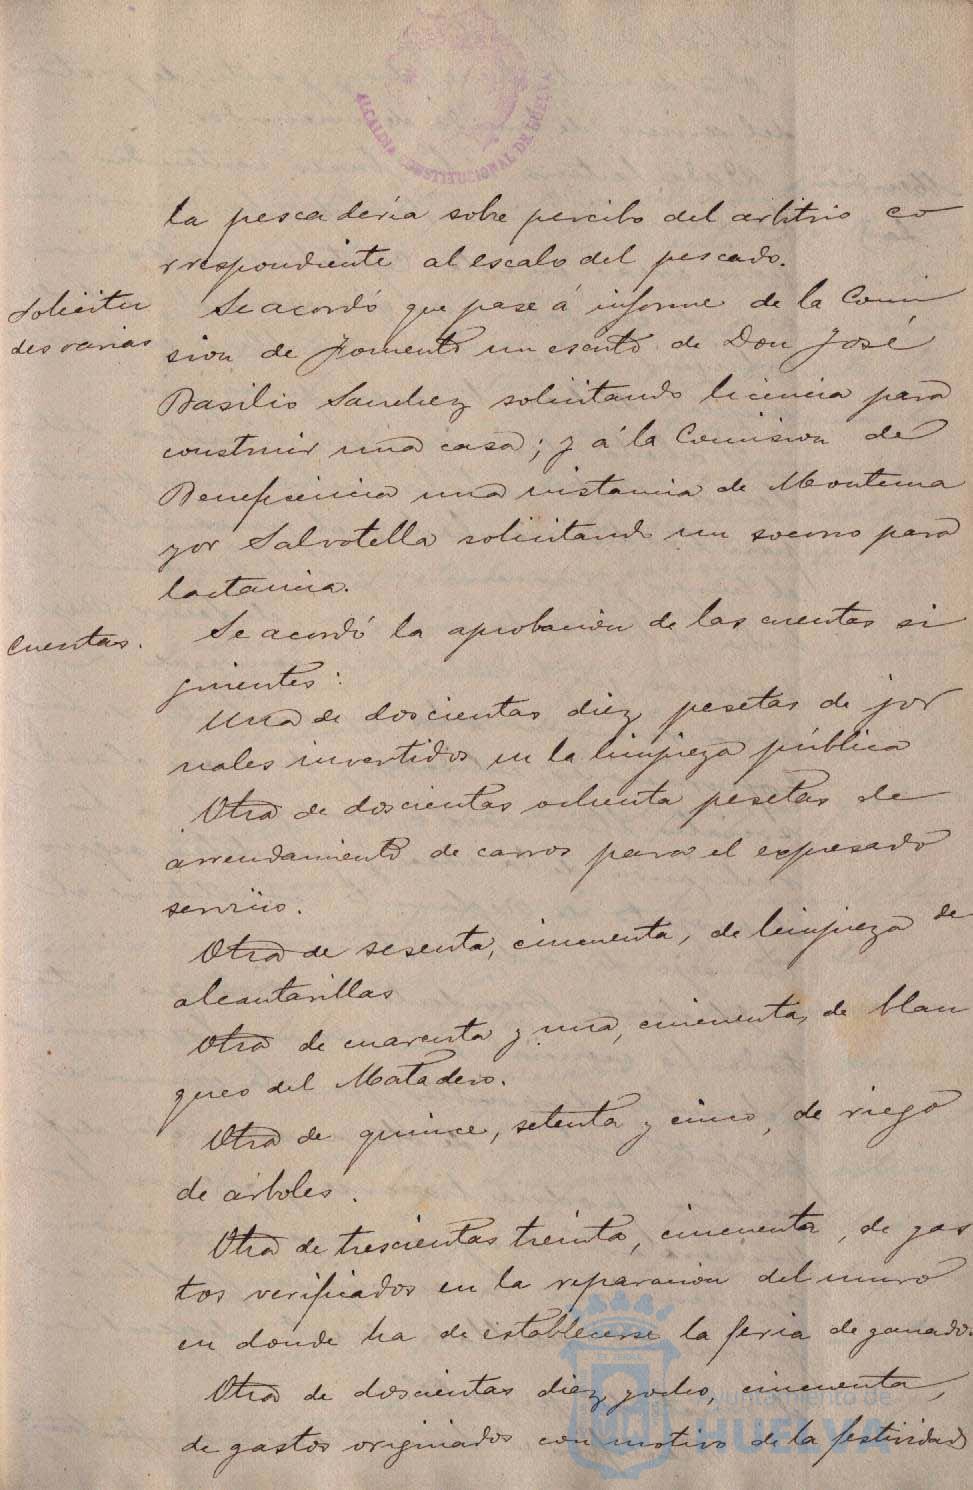 ALCALDIA CONSTITUCIONAL DE HUELVA
la pescaderia sobre percibo del arbitrio co
rrespondiente al escalo del pescado.
Solicitu
des varias
Se acordó que pase á informe de la Comi
sion de Fomento un escrito de Don José
Basilio Sanchez solicitando licencia para
construir una casa; y á la Comision de
Beneficencia una instancia de Montema
yor Salvatella solicitando un socorro para
lactancia.
Cuentas.
Se acordó la aprobacion de las cuentas si
guientes:
Una de doscientas diez pesetas de jor
nales invertidos en la limpieza pública
Otra de doscientas ochenta pesetas de
arrendamiento de carros para el expresado
servicio.
Otra de sesenta, cincuenta, de limpieza de
alcantarillas
Otra de cuarenta y una, cincuenta, de blan
queo del Matadero.
Otra de quince, setenta y cinco, de riego
de árboles.
Otra de trescientas treinta, cincuenta, de gas
tos verificados en la reparacion del muro
en donde ha de establecerse la feria de ganado.
Otra de doscientas diez y ocho, cincuenta,
de gastos originados con motivo de la festividad
Ayuntamiento de
HUELVA